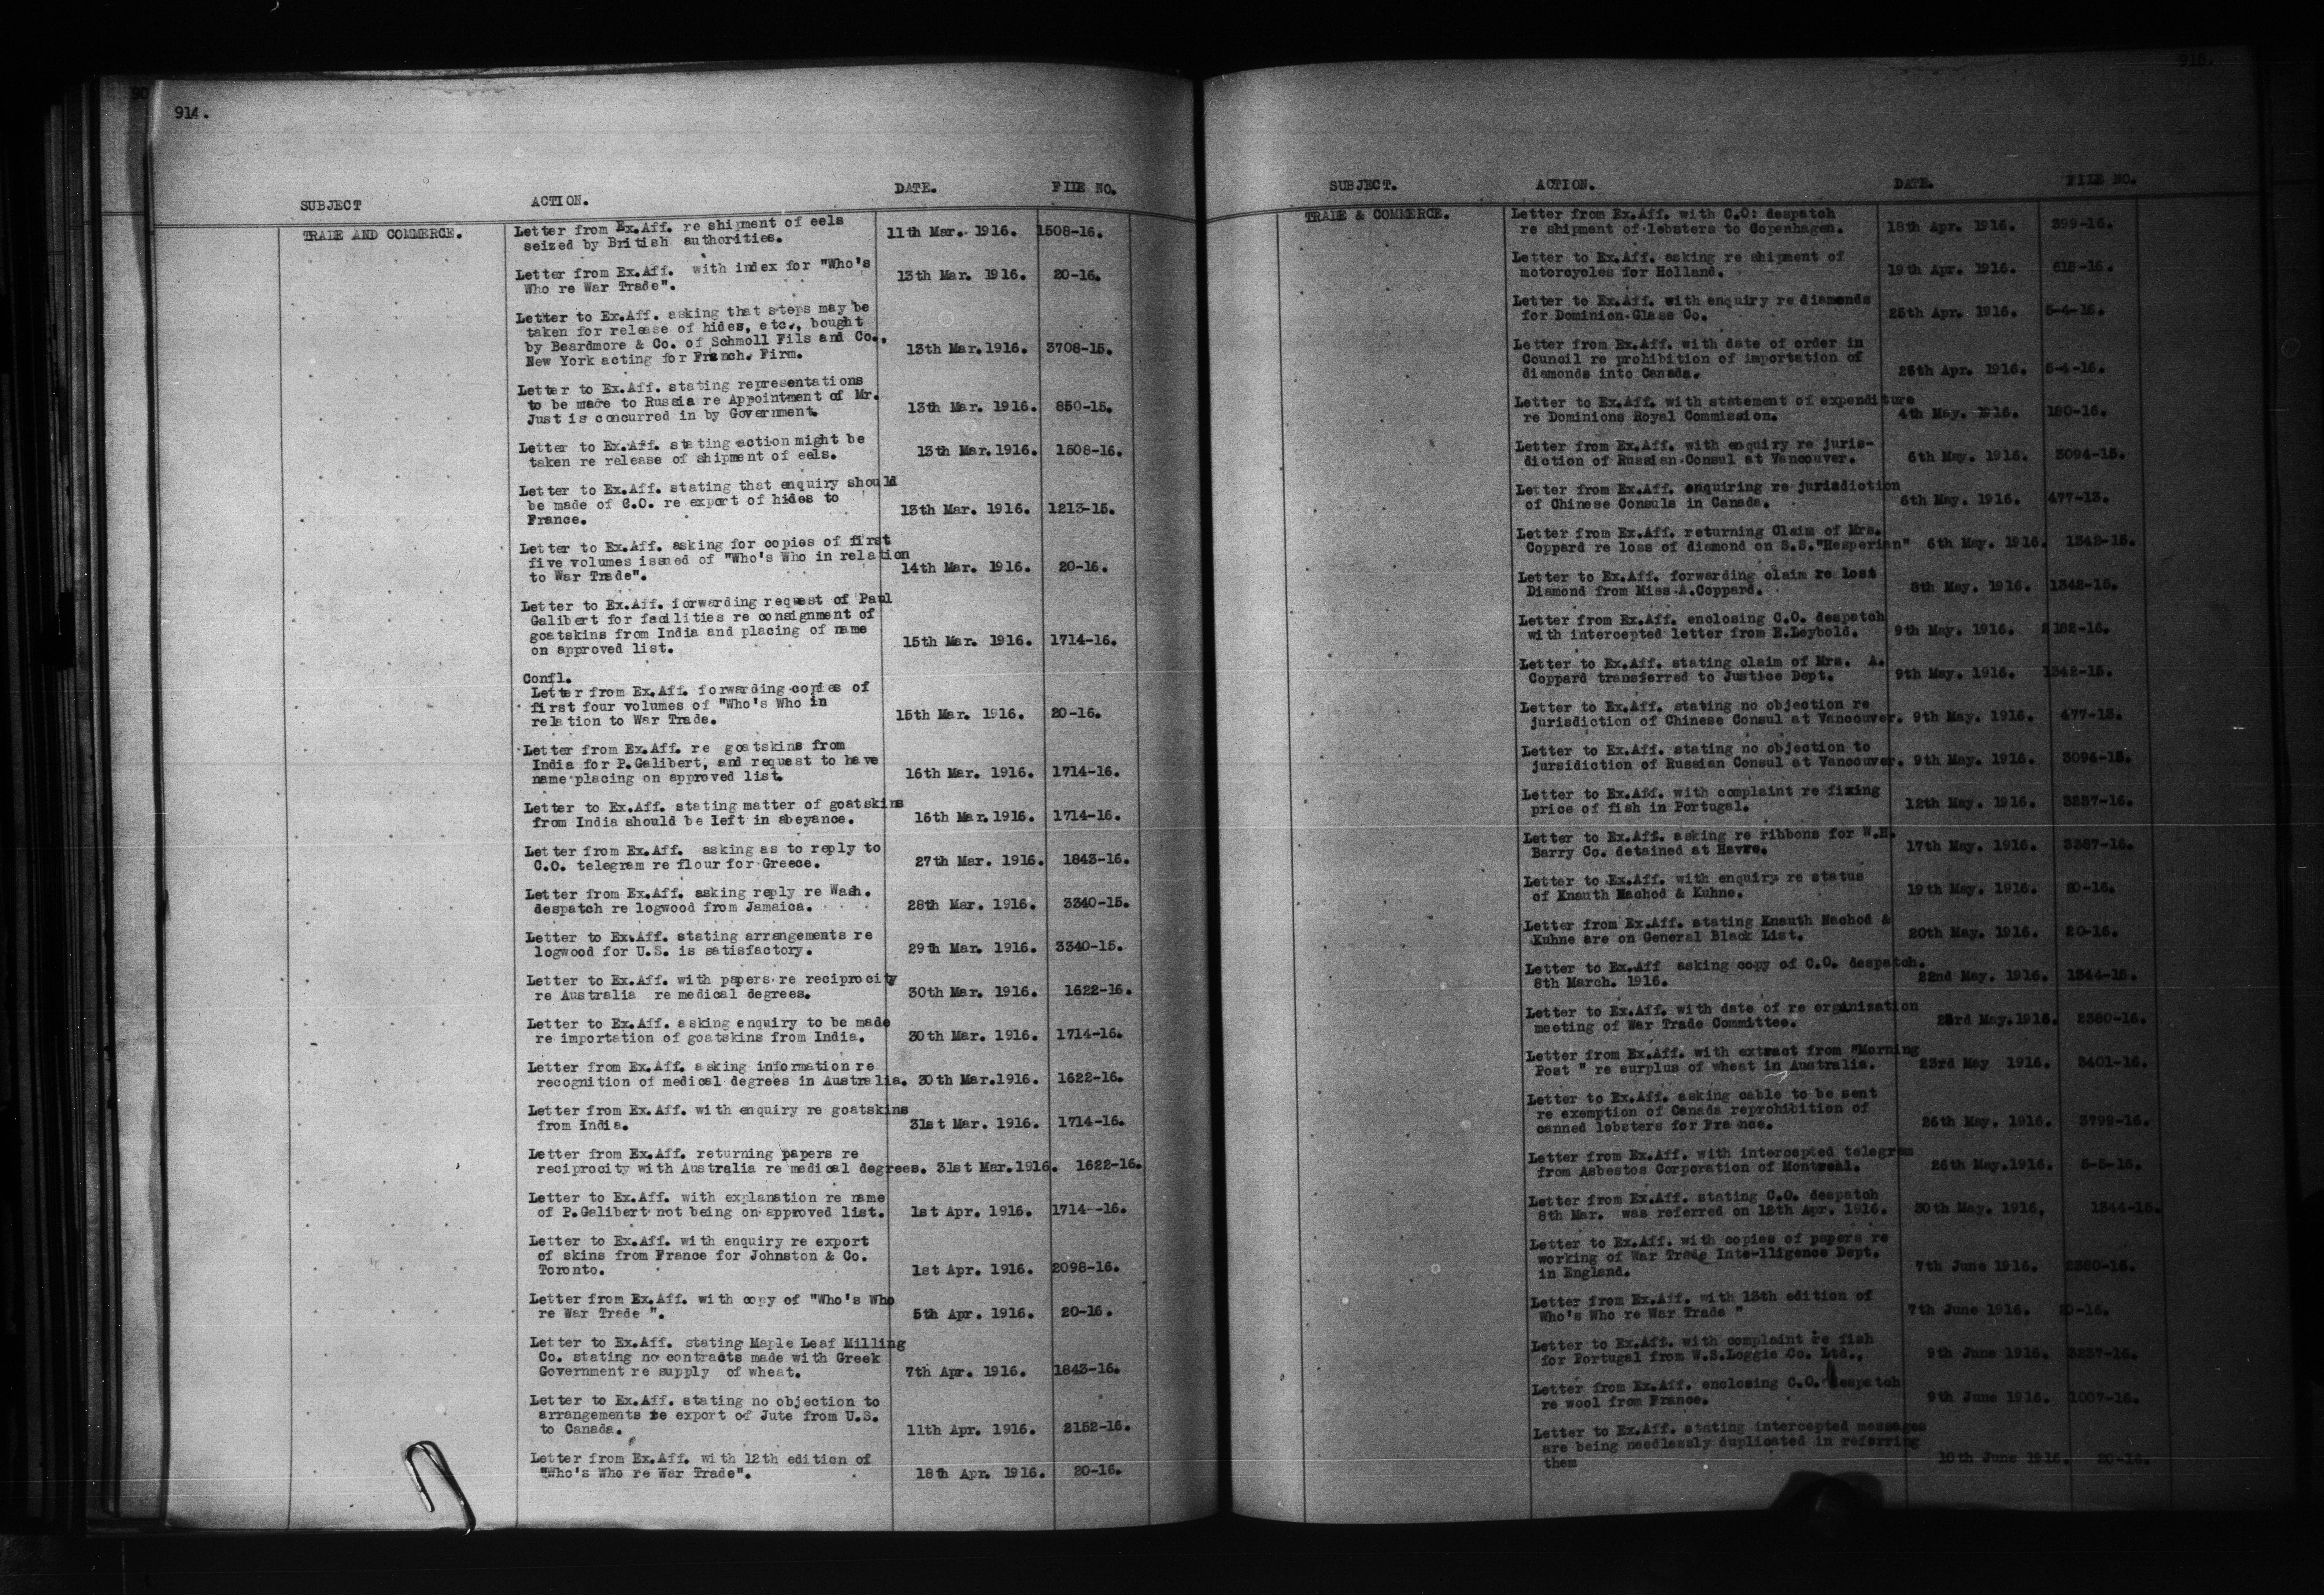 914.
SUBJECT ACTION. DATE. FILE NO.
TRADE AND COMMERCE. Letter from Ex.Aff. re shipment of eels
seized by British authorities. 11th Mar. 1916. 1508-16.
Letter from Ex.Aff. with index for "Who's
Who re War Trade". 13th Mar. 1916. 20-16.
Letter to Ex.Aff. asking that steps may be
taken for release of hides, etc., bought
by Beardmore & Co. of Schmoll Fils and Co.,
New York acting for French. Firm. 13th Mar.1916. 3708-15.
Letter to Ex.Aff. stating representations
to be made to Russia re Appointment of Mr.
Just is concurred in by Government. 13th Mar. 1916. 850-15.
Letter to Ex.Aff. stating action might be
taken re release of shipment of eels. 13th Mar.1916. 1508-16.
Letter to Ex.Aff. stating that enquiry should
be made of C.O. re export of hides to
France. 13th Mar. 1916. 1213-15.
Letter to Ex.Aff. asking for copies of first
five volumes issued of "Who's Who in relation
to War Trade". 14th Mar. 1916. 20-16.
Letter to Ex.Aff. forwarding request of Paul
Galibert for facilities re consignment of
goatskins from India and placing of name
on approved list. 15th Mar. 1916. 1714-16.
Confl.
Letter from Ex.Aff. forwarding copies of
first four volumes of "Who's Who in
relation to War Trade. 15th Mar. 1916. 20-16.
Letter from Ex.Aff. re goatskins from
India for P.Galibert, and request to have
name placing on approved list. 16th Mar. 1916. 1714-16.
Letter to Ex.Aff. stating matter of goatskins
from India should be left in abeyance. 16th Mar.1916. 1714-16.
Letter from Ex.Aff. asking as to reply to
C.O. telegram re flour for Greece. 27th Mar. 1916. 1843-16.
Letter from Ex.Aff. asking reply re Wash.
despatch re logwood from Jamaica. 28th Mar. 1916. 3340-15.
Letter to Ex.Aff. stating arrangements re
logwood for U.S. is satisfactory. 29th Mar. 1916. 3340-15.
Letter to Ex.Aff. with papers re reciprocity
re Australia re medical degrees. 30th Mar. 1916. 1622-16.
Letter to Ex.Aff. asking enquiry to be made
re importation of goatskins from India. 30th Mar. 1916. 1714-16.
Letter from Ex.Aff. asking information re
recognition of medical degrees in Australia. 30th Mar.1916. 1622-16.
Letter from Ex.Aff. with enquiry re goatskins
from India. 31st Mar. 1916. 1714-16.
Letter from Ex.Aff. returning papers re
reciprocity with Australia re medical degrees. 31st Mar.1916. 1622-16.
Letter to Ex.Aff. with explanation re name
of P.Galibert not being on approved list. 1st Apr. 1916. 1714--16.
Letter to Ex.Aff. with enquiry re export
of skins from France for Johnston & Co.
Toronto. 1st Apr. 1916. 2098-16.
Letter from Ex.Aff. with copy of "Who's Who
re War Trade ". 5th Apr. 1916. 20-16.
Letter to Ex.Aff. stating Maple Leaf Milling
Co. stating no contracts made with Greek
Government re supply of wheat. 7th Apr. 1916. 1843-16.
Letter to Ex.Aff. stating no objection to
arrangements re export of Jute from U.S.
to Canada. 11th Apr. 1916. 2152-16.
Letter from Ex.Aff. with 12th edition of
"Who's Who re War Trade". 18th Apr. 1916. 20-16.
915.
SUBJECT. ACTION. DATE. FILE NO.
TRADE & COMMERCE. Letter from Ex.Aff. with C.O: despatch
re shipment of lobsters to Copenhagen. 18th Apr. 1916. 399-16.
Letter to Ex.Aff. asking re shipment of
motorcycles for Holland. 19th Apr. 1916. 618-16.
Letter to Ex.Aff. with enquiry re diamonds
for Dominion Glass Co. 25th Apr. 1916. 5-4-16.
Letter from Ex.Aff. with date of order in
Council re prohibition of importation of
diamonds into Canada. 25th Apr. 1916. 5-4-16.
Letter to Ex.Aff. with statement of expenditure
re Dominions Royal Commission. 4th May. 1916. 180-16.
Letter from Ex.Aff. with enquiry re juris-
diction of Russian Consul at Vancouver. 6th May. 1916. 3094-15.
Letter from Ex.Aff. enquiring re jurisdiction
of Chinese Consuls in Canada. 6th May. 1916. 477-13.
Letter from Ex.Aff. returning Claim of Mrs.
Coppard re loss of diamond on S.S."Hesperian" 6th May. 1916. 1342-15.
Letter to Ex.Aff. forwarding claim re lost
Diamond from Miss A.Coppard. 8th May. 1916. 1342-15.
Letter from Ex.Aff. enclosing C.O. despatch
with intercepted letter from E.Leybold. 9th May. 1916. 2182-16.
Letter to Ex.Aff. stating claim of Mrs. A.
Coppard transferred to Justice Dept. 9th May. 1916. 1342-15.
Letter to Ex.Aff. stating no objection re
jurisdiction of Chinese Consul at Vancouver. 9th May. 1916. 477-13.
Letter to Ex.Aff. stating no objection to
jursidiction of Russian Consul at Vancouver. 9th May. 1916. 3094-15.
Letter to Ex.Aff. with complaint re fixing
price of fish in Portugal. 12th May. 1916. 3237-16.
Letter to Ex.Aff. asking re ribbons for W.H.
Barry Co. detained at Havre. 17th May. 1916. 3387-16.
Letter to Ex.Aff. with enquiry re status
of Knauth Nachod & Kuhne. 19th May. 1916. 20-16.
Letter from Ex.Aff. stating Knauth Nachod &
Kuhne are on General Black List. 20th May. 1916. 20-16.
Letter to Ex.Aff asking copy of C.O. despatch.
8th March. 1916. 22nd May. 1916. 1344-15.
Letter to Ex.Aff. with date of re organization
meeting of War Trade Committee. 23rd May.1916. 2380-16.
Letter from Ex.Aff. with extract from "Morning
Post " re surplus of wheat in Australia. 23rd May 1916. 3401-16.
Letter to Ex.Aff. asking cable to be sent
re exemption of Canada reprohibition of
canned lobsters for France. 26th May. 1916. 3799-16.
Letter from Ex.Aff. with intercepted telegram
from Asbestos Corporation of Montreal. 26th May.1916. 5-5-16.
Letter from Ex.Aff. stating C.O. despatch
8th Mar. was referred on 12th Apr. 1916. 30th May. 1916. 1344-15.
Letter to Ex.Aff. with copies of papers re
working of War Trade Inte-lligence Dept.
in England. 7th June 1916. 2380-16.
Letter from Ex.Aff. with 13th edition of
Who's Who re War Trade " 7th June 1916. 20-16.
Letter to Ex.Aff. with complaint re fish
for Portugal from W.S.Loggie Co. Ltd., 9th June 1916. 3237-16.
Letter from Ex.Aff. enclosing C.O. despatch
re wool from France. 9th June 1916. 1007-16.
Letter to Ex.Aff. stating intercepted messages
are being needlessly duplicated in referring
them 10th June 1916. 20-16.